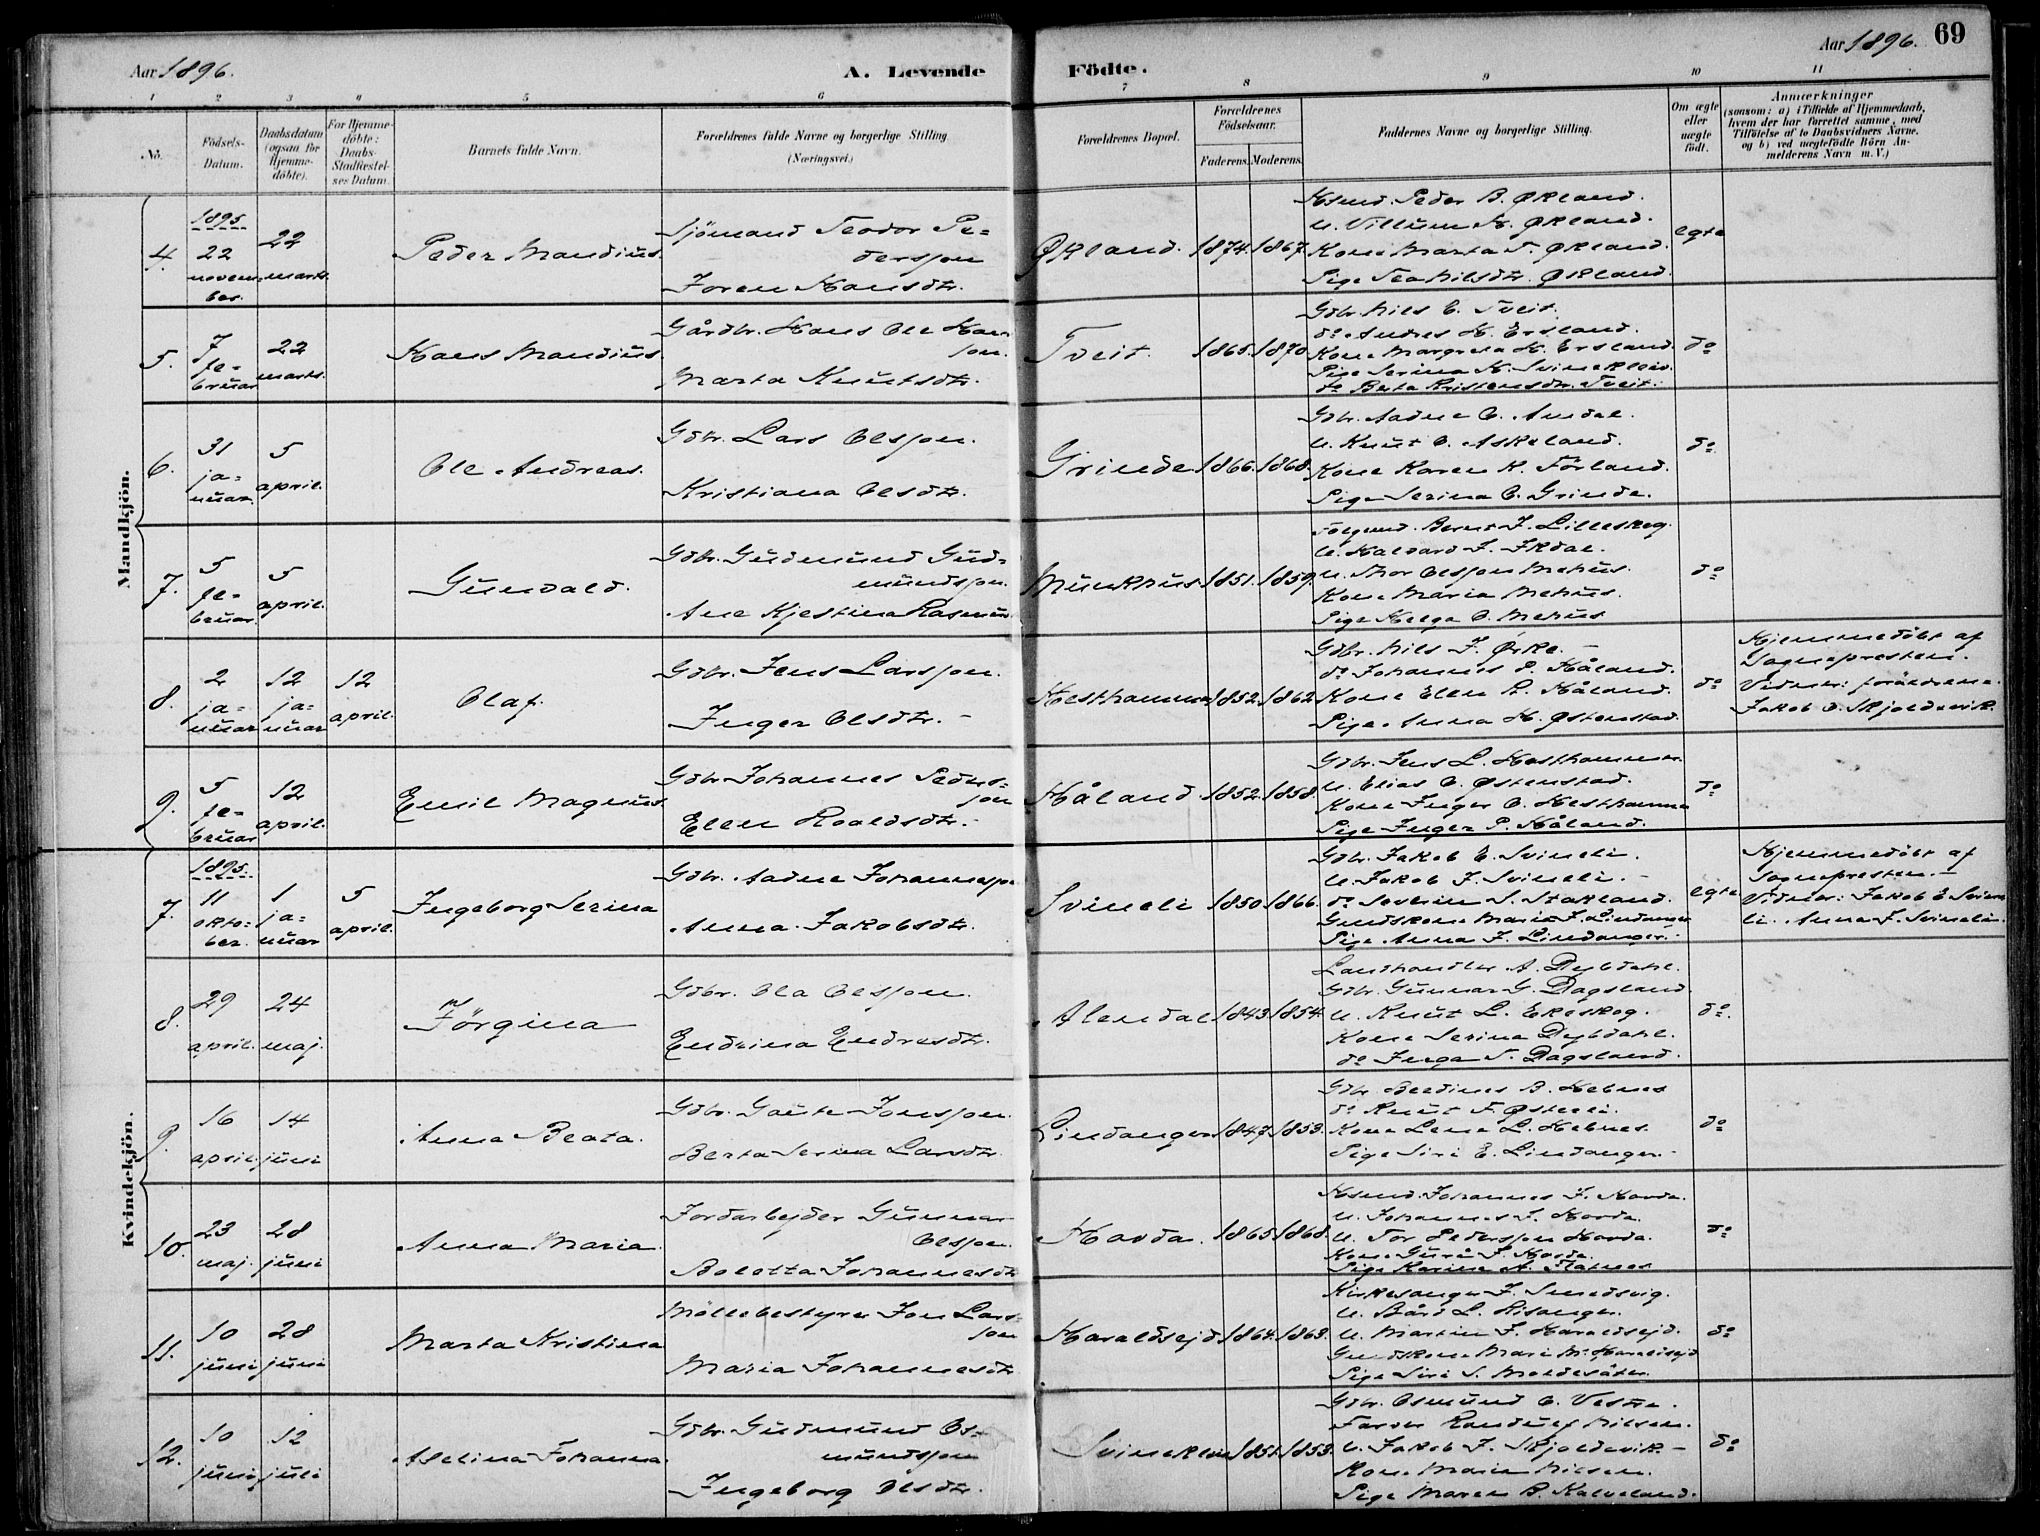 Aar 1896. A. Levende Födte. Aar 1896. 69
1 2 3 4 5 6 7 8 9 10 11
No.
Födsels-Datum.
Daabsdatum (ogsaa for Hjemme-döbte).
For Hjemme-döbte: Daabs-Stadfæstel-ses Datum.
Barnets fulde Navn.
Forældrenes fulde Navne og borgerlige Stilling (Næringsvei.)
Forældrenes Bopæl.
Forældrenes Födselsaar.
Faderens. Moderens.
Faddernes Navne og borgerlige Stilling.
Om ægte eller uægte födt.
Anmærkninger
(saasom: a) i Tilfælde af Hjemmedaab,
hvem der har forrettet samme, med
Tilföielse af to Daabsvidners Navne.
og b) ved uægtefödte Börn An-
melderens Navn m.V.)
Mandkjön.
4.
1895
22 novem-ber.
22 marts.
Peder Mandius.
Sjömand Teodor Pe-
dersson
Joren Hansdtr.
Økland. 1874. 1867.
Husmd. Peder B. Økland.
U. Villum H. Økland.
Kone Marta T. Økland.
Pige Tea Nilsdtr. Økland.
egte
5.
7 fe-bruar
22 marts.
Hans Mandius.
Gårdbr. Hans Ole Han-
son.
Marta Knutsdtr.
Tveit. 1865. 1870.
Gdbr. Nils E. Tveit.
do Andres H. Ersland.
Kone Margreta H. Ersland.
Pige Serina H. Svinekleiv.
do Berta Kristensdtr. Tveit.
do
6.
31 ja-nuar
5 april.
Ole Andreas.
Gdbr. Lars Olsson.
Kristiana Olsdtr.
Grinde 1866. 1868.
Gdbr. Aadne O. Amdal.
U. Knut O. Askeland.
Kone Karen K. Förland.
Pige Serina O. Grinde.
do
7.
5 fe-bruar.
5 april.
Gunvald.
Gdbr. Gudmund Gud-
mundsson.
Ane Kjestina Rasmusd.
Munkhus 1851. 1859.
Berent J. Lilleskog.
U. Halvard J. Ikdal.
U. Thor Olsson Mehus.
Kone Maria Mehus.
Pige Helga O. Mehus
do
8.
2 ja-nuar
12 ja-nuar
12 april.
Olaf.
Gdbr. Jens Larsson.
Inger Olsdtr. -
Hesthammer 1852. 1862.
Gdbr. Nils J. Ørke. -
do Johannes P. Håland.
Kone Ellen R. Håland.
Pige Anna H. Østenstad.
do
Hjemmedöbt af
Sognepresten.
Vidner: foräldrene.
Jakob O. Skjoldevik.
9.
5 fe-bruar
12 april.
Emil Magnus
Gdbr. Johannes Peders-
son
Elen Roaldsdtr. -
Håland 1852. 1858.
Gdbr. Jens L. Hesthammer.
U. Elias O. Østenstad.
Kone Inger O. Hesthammer
Pige Inger P. Håland.
do
Kvindekjön.
7.
1895.
11 okto-ber.
1 ja-nuar
5 april.
Ingeborg Serina
Gdbr. Aadne Johannesson
Anna Jakobsdtr.
Svineli 1850. 1866.
Gdbr. Jakob E. Svineli.
U. Jakob J. Svineli. -
do Severin S. Stakland.
Gmdskone Maria J. Lindanger
Pige Anna J. Lindanger. -
egte
Hjemmedöbt af
Sognepresten. -
Vidner: Jakob E. Svine-
li. Anna J. Svineli.
8.
29 april.
24 maj.
Jörgina
Gdbr. Ola Olsson.
Endrina Endresdtr.
Alendal 1843. 1854.
Landhandler A. Dybdahl.
Gdbr. Gunnar G. Dagsland.
U. Knut L. Ekeskog.
Kone Serina Dybdahl.
do Inga T. Dagsland.
do.
9.
16 april.
14 juni
Anna Beata.
Gdbr. Gaute Jonsson.
Berta Serina Larsdtr.
Lindanger 1847. 1853.
Gdbr. Berdines B. Hebnes
do Knut T. Østerli.
Kone Lena L. Hebnes.
Pige Siri E. Lindanger. -
do
10.
23 maj.
28 juni
Anna Maria.
Jordarbejder Gunnar
Olsson.
Boletta Johannesdtr
Hovda. 1865. 1868.
Husmd. Johannes J. Hovda.
U. Johannes J. Hovda.
U. Tor Pedersson Hovda.
Kone Guri J. Hovda.
Pige Karina A. Flatnes
do
11.
10 juni
28 juni
Marta Kristina
Möllebestyrer Jon Lars-
son
Maria Johannesdtr
Haraldsejd 1864. 1863.
Kirkesanger J. Sundsvig.
U. Bård L. Risanger.
U. Martin J. Haraldsejd.
Gmdskone Mari M. Haraldsejd
Pige Siri S. Moldesäter.
do
12.
10 juni
12 juli
Aletina Johanna.
Gdbr. Gudmund Os-
mundsson
Ingeborg Olsdtr.
Svinekleiv 1851. 1853.
Gdbr. Osmund O. Vestre.
Farver Randulf Nilsen.
U. Jakob J. Skjoldevik. -
Kone Maria Nilsen.
Pige Maren B. Kalveland.
do